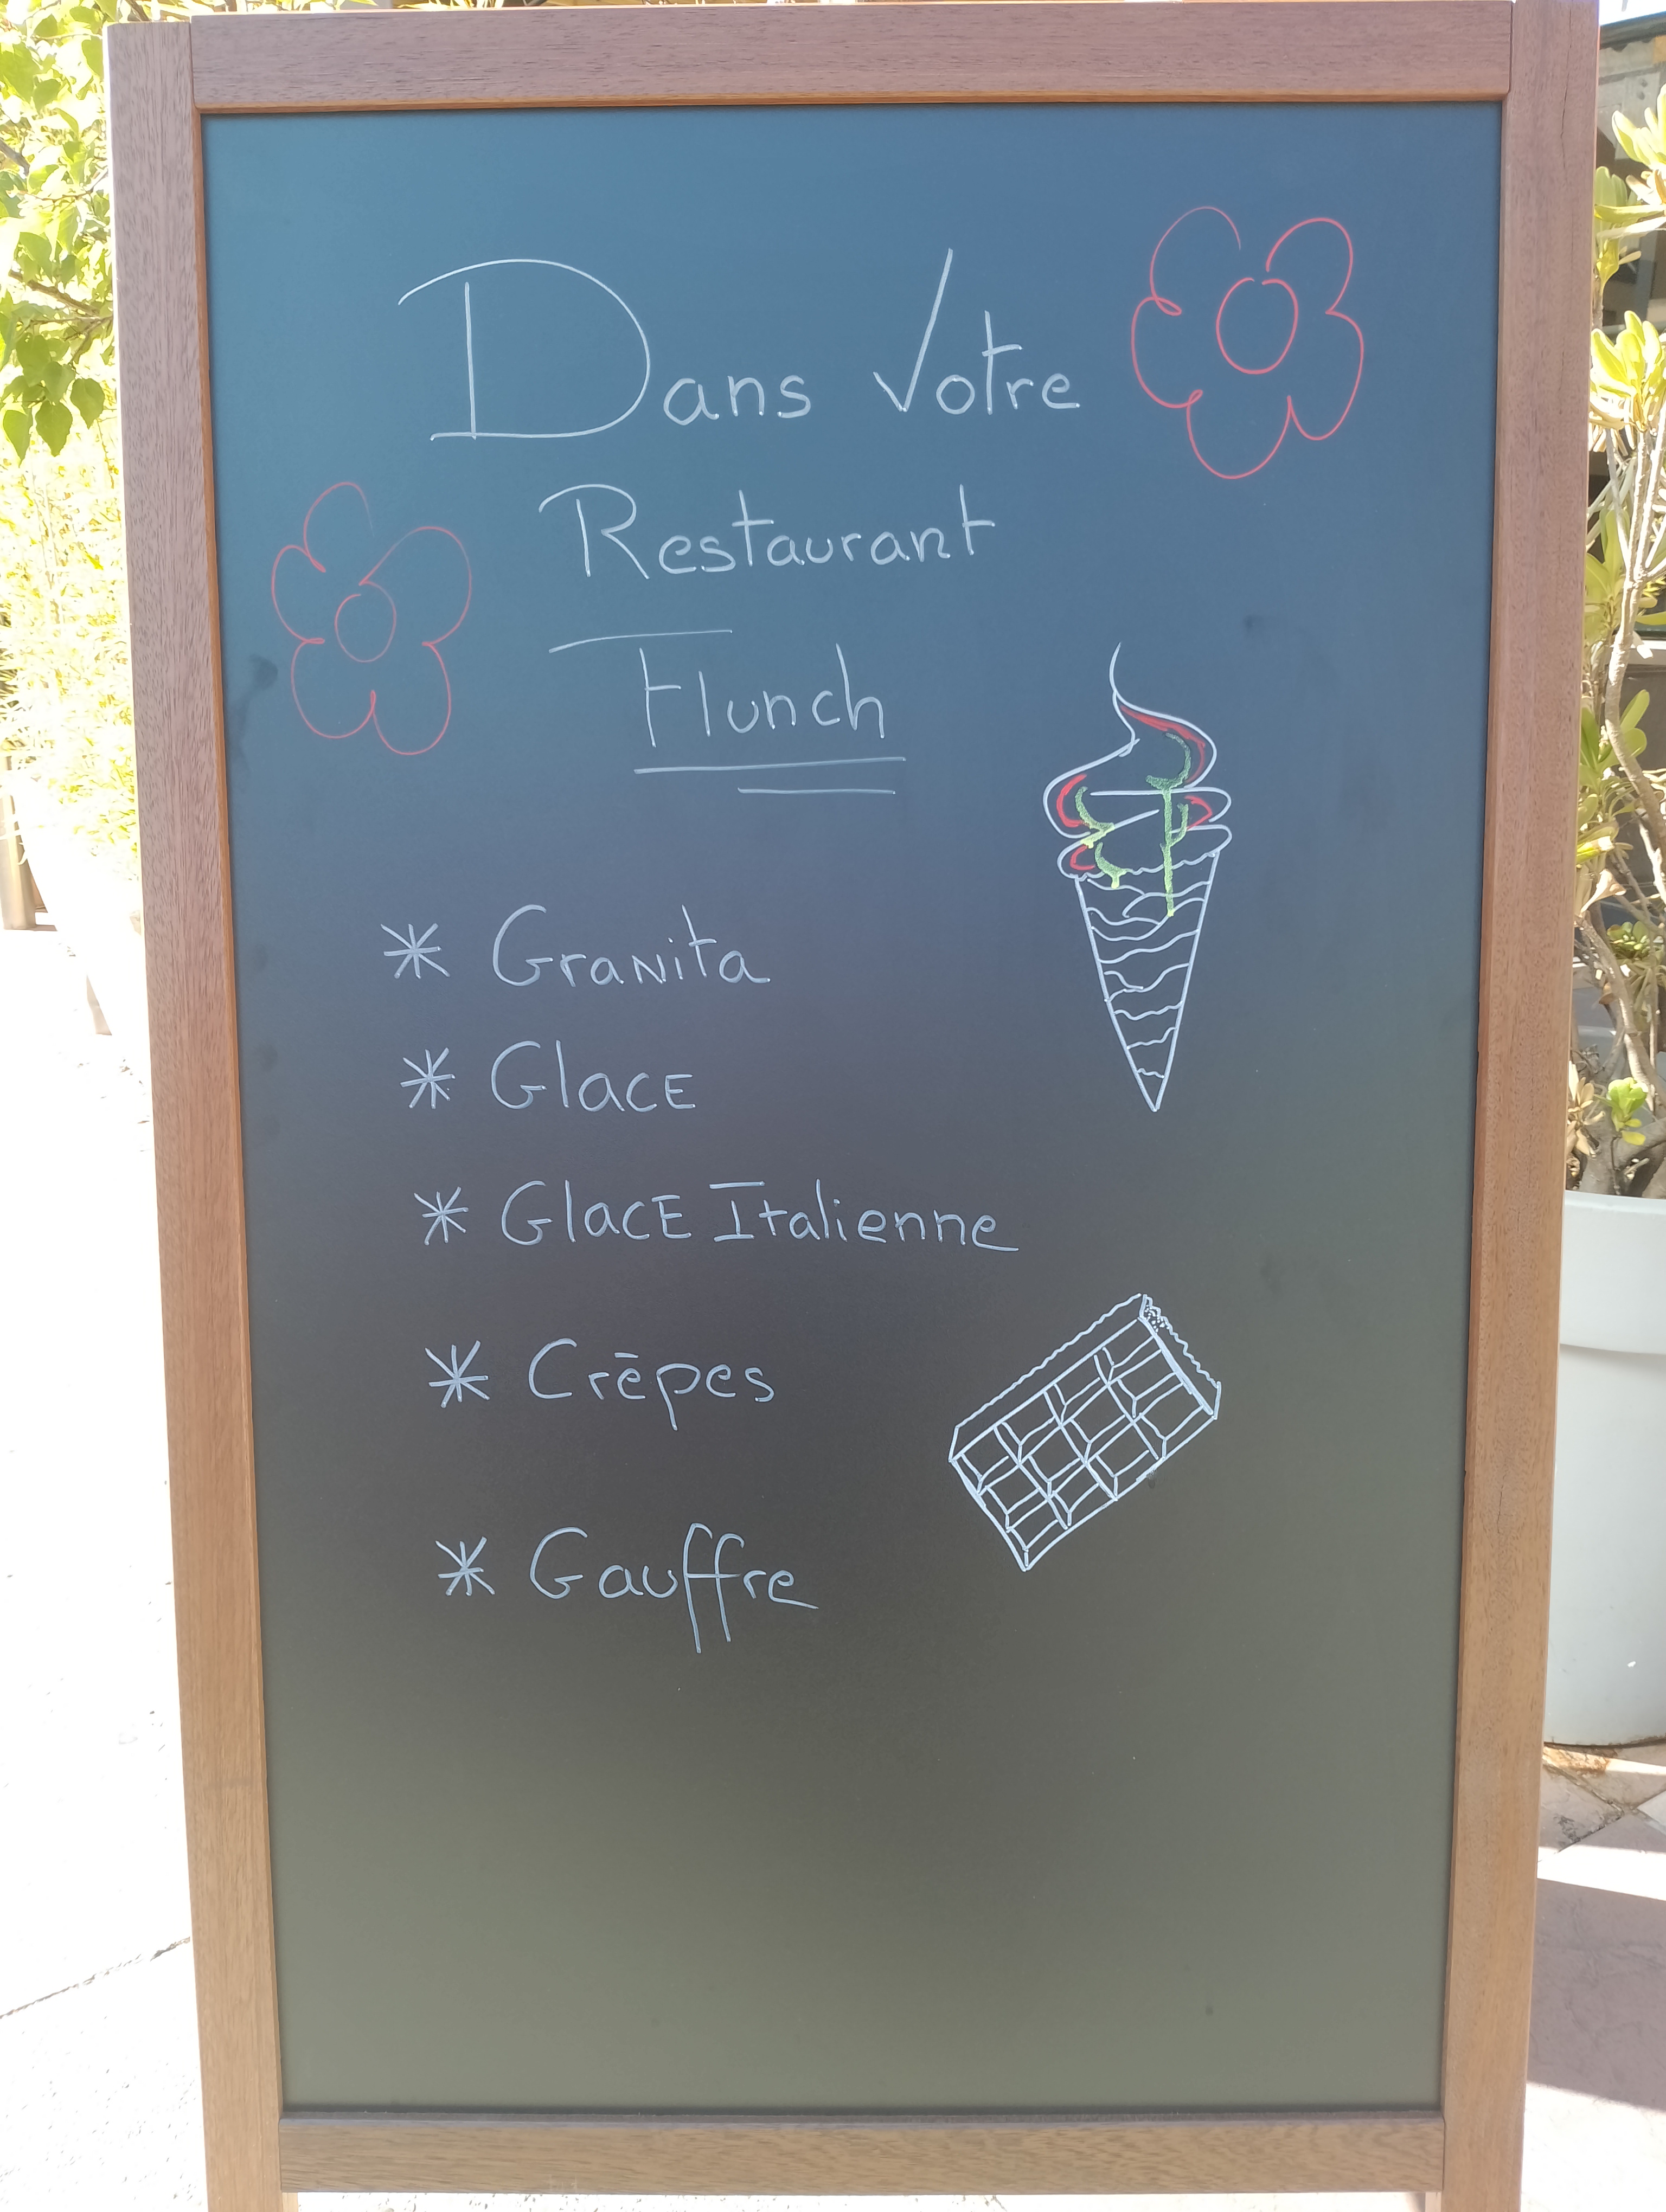 Dans Votre
Restaurant
Flunch
* Granita
* GlacE
* GlacE Italienne
* Crēpes
* Gauffre